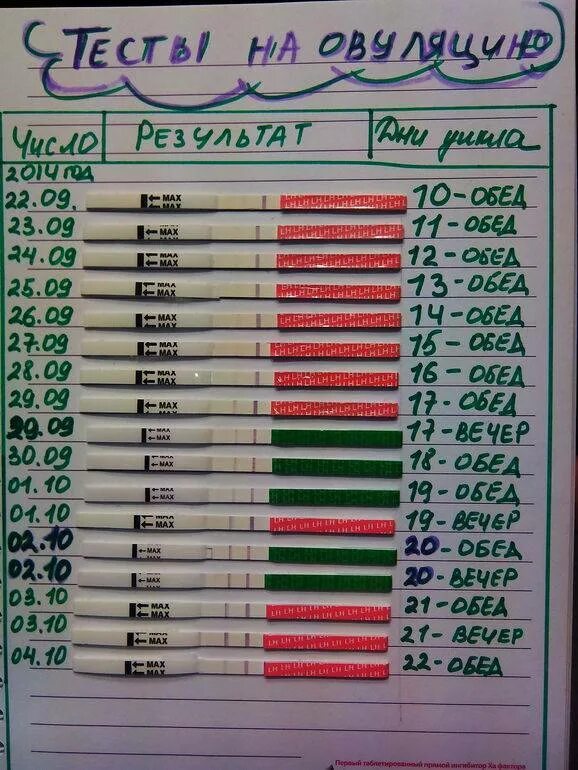 ТЕСТЫ НА ОВУЛЯЦИЮ
ЧИСЛО РЕЗУЛЬТАТ Дни цикла
2014 год
22.09. MAX LH LH LH LH LH LH 10-ОБЕД
23.09 MAX LH LH LH LH LH LH 11-ОБЕД
24.09 MAX LH LH LH LH LH LH 12-ОБЕД
25.09 MAX LH LH LH LH LH LH 13-ОБЕД
26.09 MAX LH LH LH LH LH LH 14-ОБЕД
27.09 MAX LH LH LH LH LH LH 15-ОБЕД
28.09 MAX LH LH LH LH LH LH 16-ОБЕД
29.09 MAX LH LH LH LH LH LH 17-ОБЕД
29.09 MAX 17-ВЕЧЕР
30.09 MAX 18-ОБЕД
01.10 MAX 19-ОБЕД
01.10 MAX LH LH LH LH LH LH 19-ВЕЧЕР
02.10 MAX 20-ОБЕД
02.10 MAX 20-ВЕЧЕР
03.10 MAX LH LH LH LH LH LH 21-ОБЕД
03.10 MAX LH LH LH LH LH LH 21-ВЕЧЕР
04.10 MAX LH LH LH LH LH LH 22-ОБЕД
Первый таблетированный прямой ингибитор Ха фактора